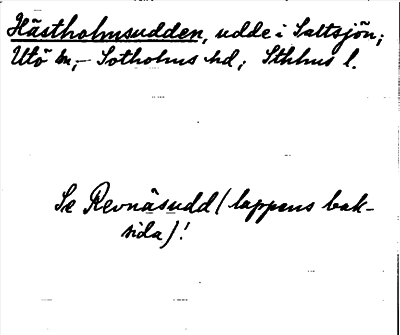 Hästholmsudden, udde i Saltsjön;
Utö sn,- Sotholms hd; Sthlms l.
Se Revnäsudd (lappens bak-
sida)!